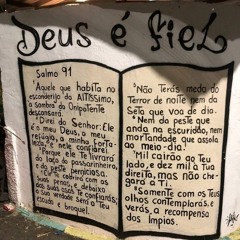 Deus é fiel
Salmo 91
Aquele que habita no
esconderijo do ALTÍSSIMO,
a sombra do Onipotente
descansará.
Direi do Senhor: Ele
é o meu Deus, o meu
refúgio, a minha forta-
leza, e nele confiarei.
Porque ele Te livrará
do laço do passarinheiro,
e da peste perniciosa.
suas penas, e debaixo
das suas asas te confiarás;
a sua verdade será o Teu
escudo e broquel.
"Não Terás medo do
Terror de noite nem da
Seta que voa de dia.
"Nem da peste que
anda na escuridão, nem
mortandade que assola
ao meio-dia.
"Mil cairão ao Teu
lado, e dez mil a Tua
direita, mas não che-
gará a Ti.
"Somente com os Teus
olhos contemplarás, e
verás, a recompensa
dos ímpios.